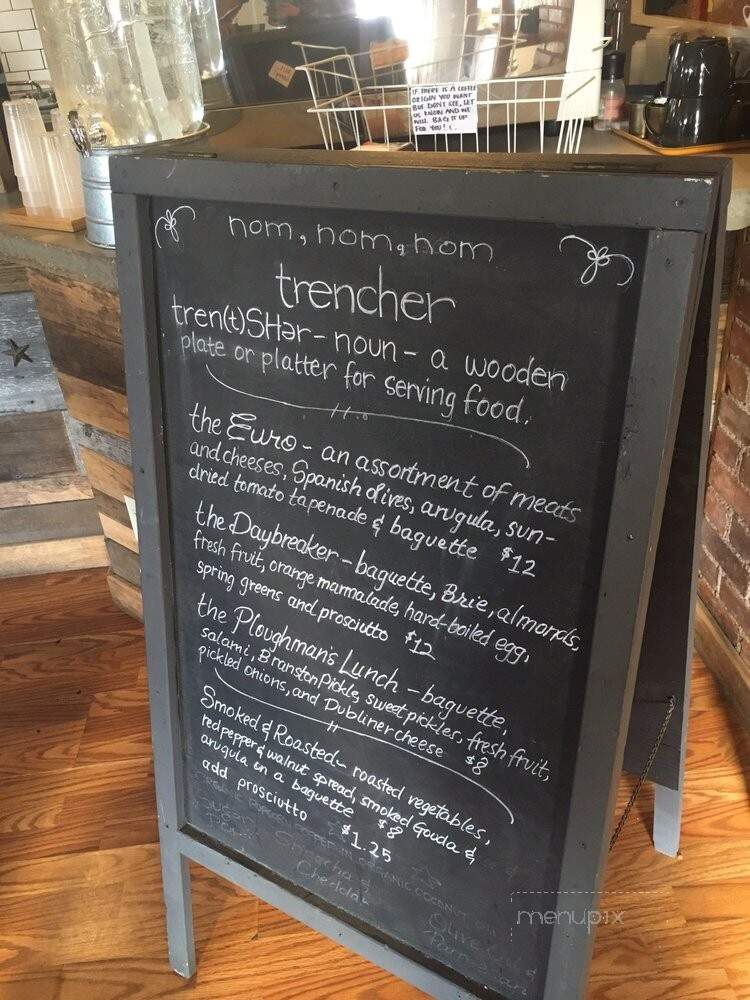 IF THERE IS A COFFEE
ORIGIN YOU WANT
BUT DON'T SEE, LET
US KNOW AND WE
WILL BAG IT UP
FOR YOU! :.
nom, nom, nom
trencher
tren(t)SHər - noun - a wooden
plate or platter for serving food.
the Euro - an assortment of meats
and cheeses, Spanish olives, arugula, sun-
dried tomato tapenade & baguette $12
the Daybreaker - baguette, Brie, almonds,
fresh fruit, orange marmalade, hard-boiled egg,
spring greens and prosciutto $12
the Ploughman's Lunch - baguette,
salami, Branston Pickle, sweet pickles, fresh fruit,
pickled onions, and Dubliner cheese $8
Smoked & Roasted - roasted vegetables,
red pepper & walnut spread, smoked Gouda &
arugula on a baguette $8
add prosciutto $1.25
ORGANIC COCONUT
Cheddar
menupix